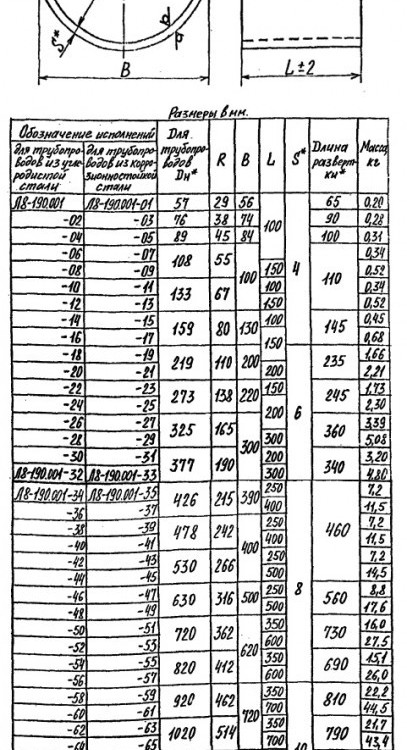 S*
B
L±2
Размеры в мм.
Обозначение исполнений
для трубопро-водов из угле-родистой стали
для трубопро-водов из корро-зионностойкой стали
Для трубопро-водов Dн*
R
B
L
S*
Длина разверт-ки*
Масса, кг
Л8-190.001 Л8-190.001-01 57 29 56 100 4 65 0,20
-02 -03 76 38 74 90 0,28
-04 -05 89 45 84 100 0,31
-06 -07 108 55 100 110 0,34
-08 -09 150 0,52
-10 -11 133 67 100 0,34
-12 -13 150 0,52
-14 -15 159 80 130 100 145 0,45
-16 -17 150 0,68
-18 -19 219 110 200 6 235 1,66
-20 -21 200 2,21
-22 -23 273 138 220 150 245 1,73
-24 -25 200 2,30
-26 -27 325 165 300 360 3,39
-28 -29 300 5,08
-30 -31 377 190 200 340 3,20
Л8-190.001-32 Л8-190.001-33 300 4,80
Л8-190.001-34 Л8-190.001-35 426 215 390 250 8 460 7,2
-36 -37 400 11,5
-38 -39 478 242 400 250 7,2
-40 -41 400 11,5
-42 -43 530 266 250 7,2
-44 -45 500 14,5
-46 -47 630 316 500 250 560 8,8
-48 -49 500 17,6
-50 -51 720 362 620 350 730 16,0
-52 -53 600 27,5
-54 -55 820 412 350 690 15,1
-56 -57 600 26,0
-58 -59 920 462 720 350 810 22,2
-60 -61 700 44,5
-62 -63 1020 514 350 10 790 21,7
-64 -65 700 43,4